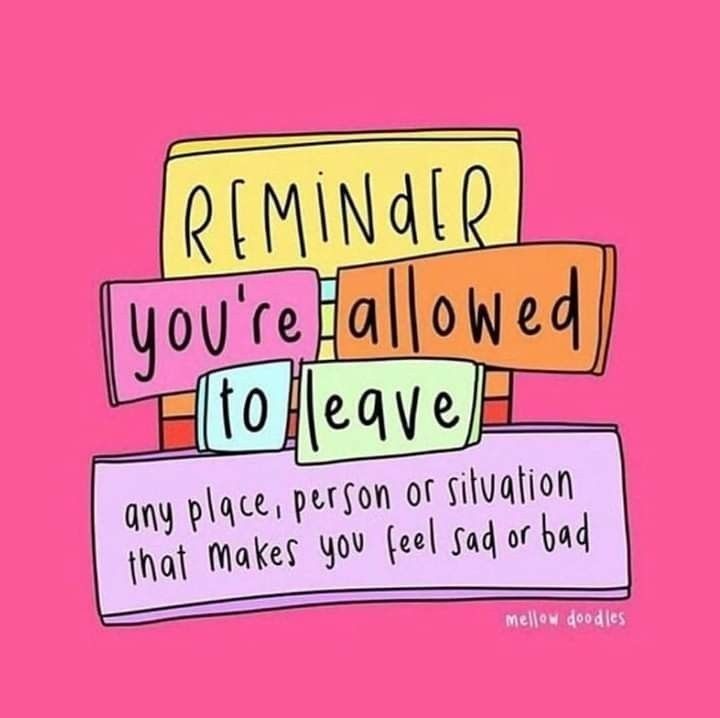 REMINDER
you're allowed
to leave
any place, person or situation
that makes you feel sad or bad
mellow doodles